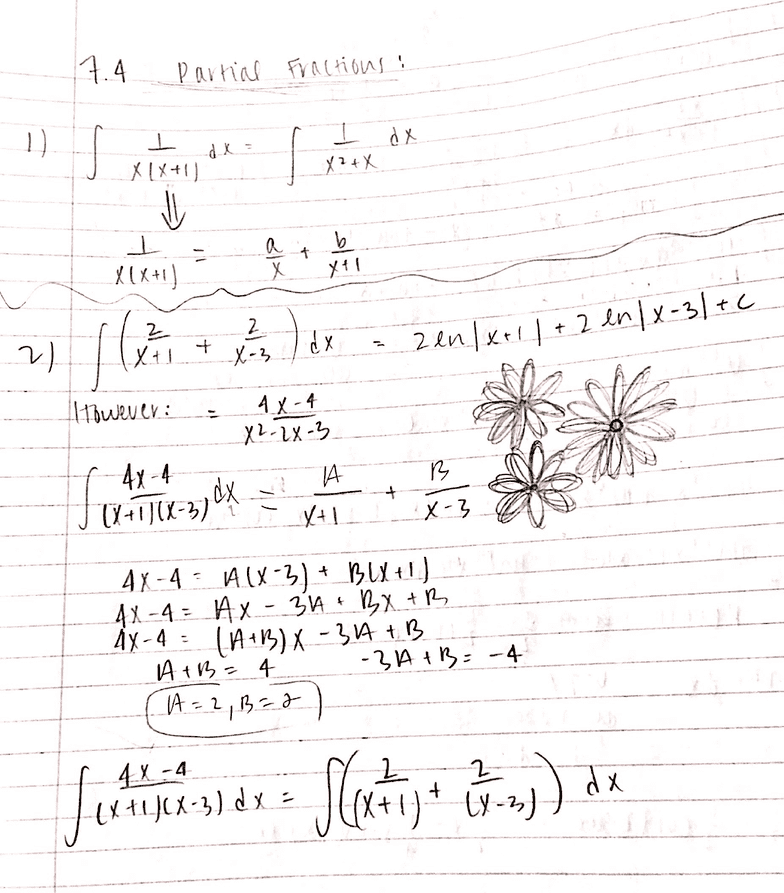 7.4 Partial Fractions:
1) ∫ 1/(x(x+1)) dx = ∫ 1/(x²+x) dx
⇓
1/(x(x+1)) = a/x + b/(x+1)
2) ∫ (2/(x+1) + 2/(x-3)) dx = 2 ln|x+1| + 2 ln|x-3| + C
However: = (4x-4)/(x²-2x-3)
∫ (4x-4)/((x+1)(x-3)) dx = A/(x+1) + B/(x-3)
4x-4 = A(x-3) + B(x+1)
4x-4 = Ax - 3A + Bx + B
4x-4 = (A+B)x - 3A + B
A+B = 4 -3A+B = -4
A=2, B=2
∫ (4x-4)/((x+1)(x-3)) dx = ∫ (2/(x+1) + 2/(x-3)) dx